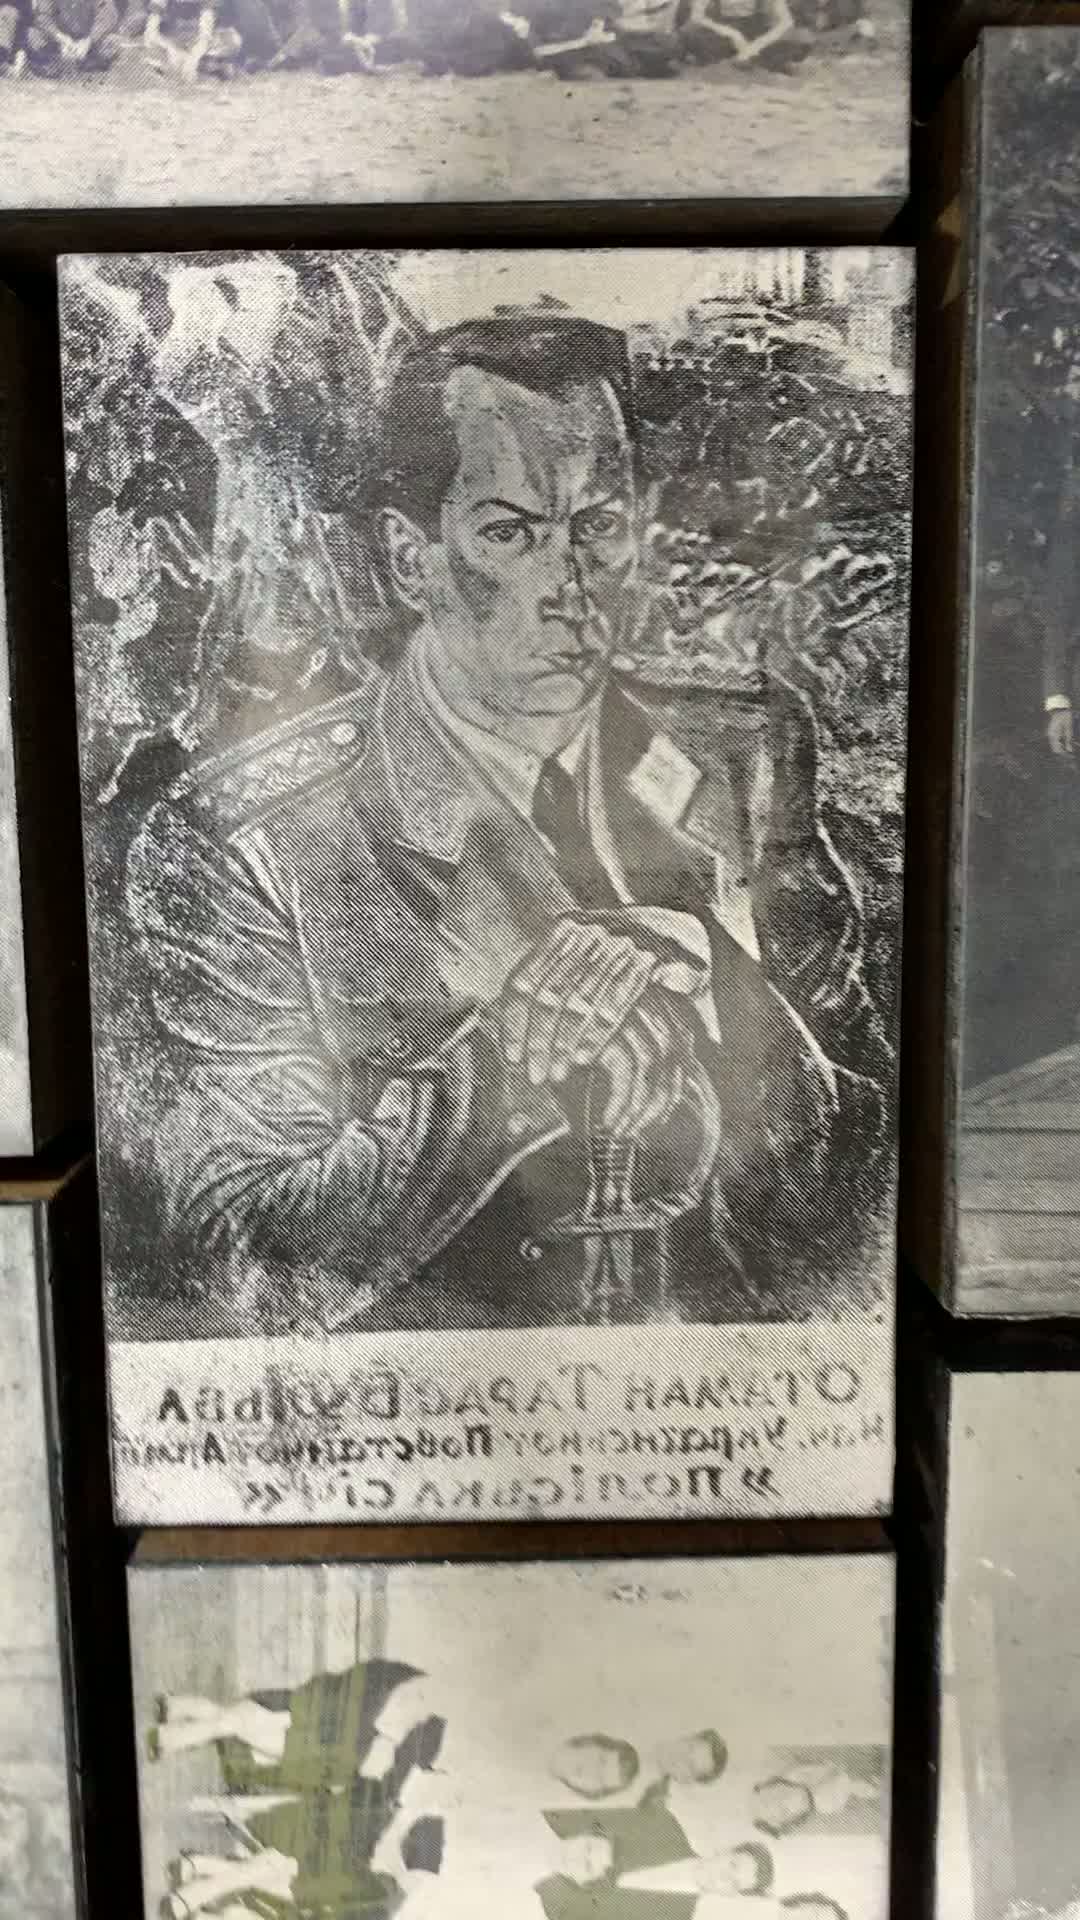 Отаман Тарас Бульба
Нач. Української Повстанчої Армії
»Поліська Січ«